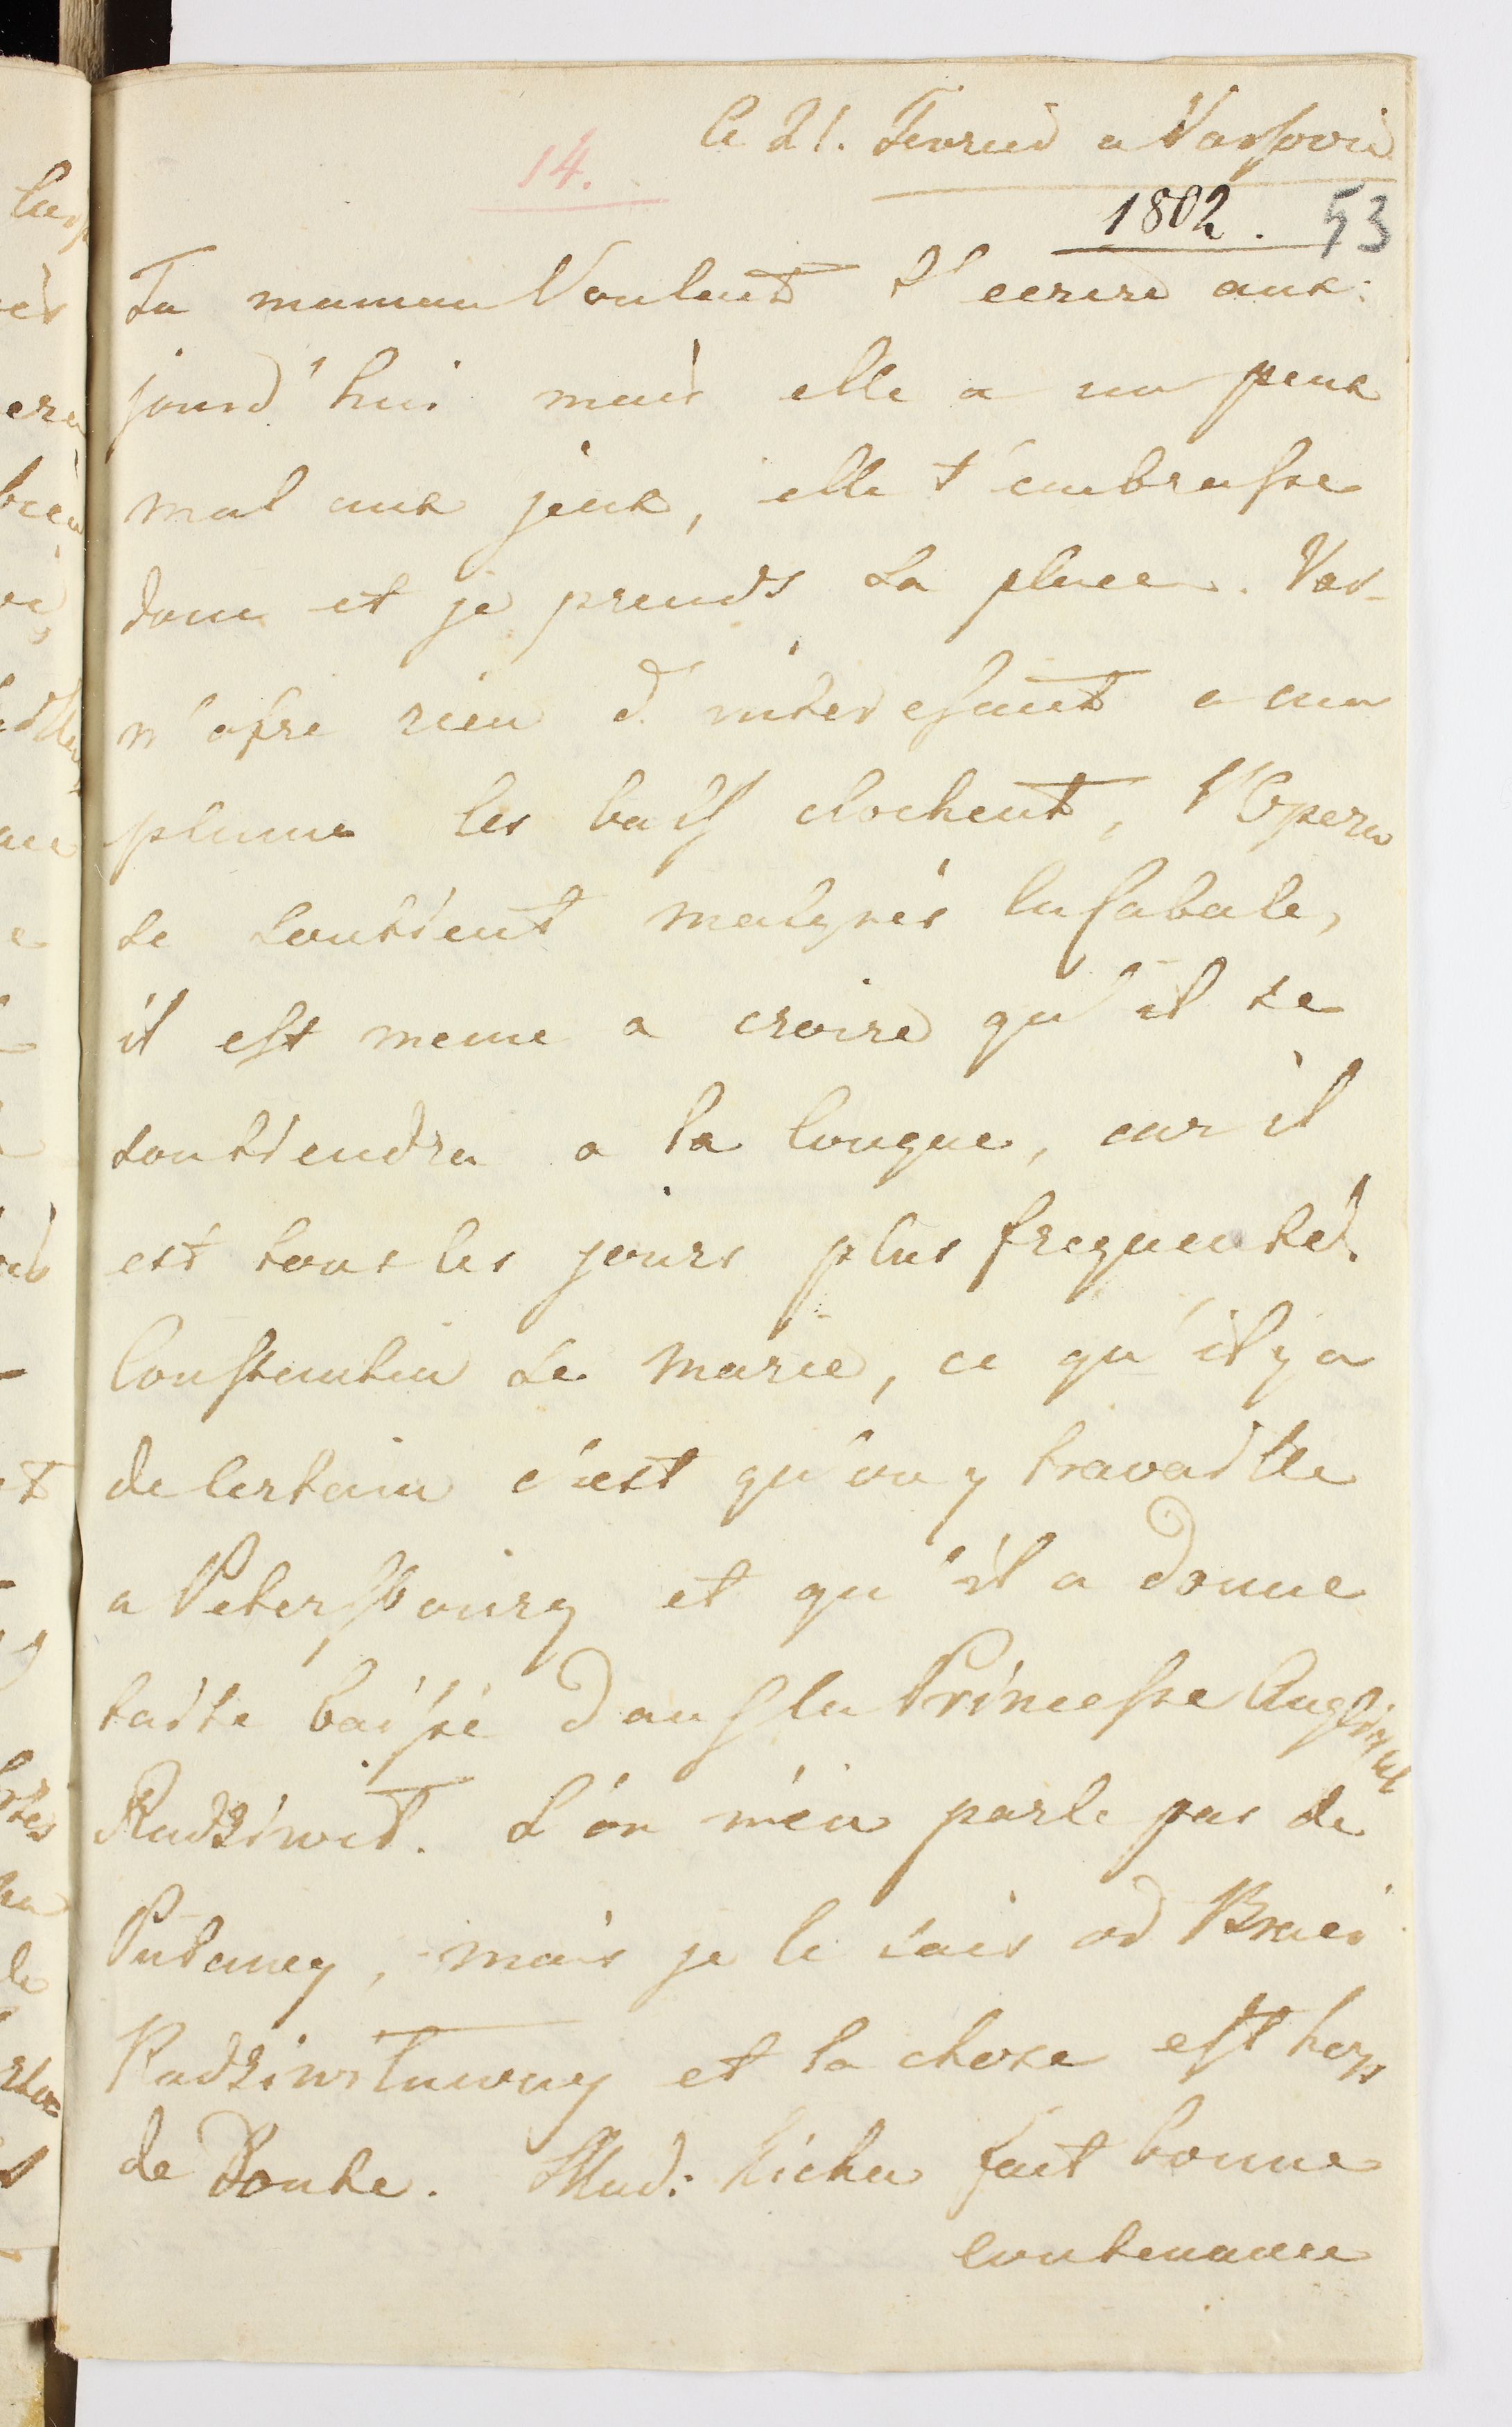 le 21. Fevrier a Varsovie
14.
1802. 53
Ta maman Voulait t'ecrire aux:
jourd'hui mais elle a un peux
mal aux jeux, elle t'embrasse
donc et je prends sa place. Var-
n'ofre rien d'interessant a ma
plume les bals clochent, l'Opera
se soutient malgrés la Cabale,
il est meme a croire qu'il se
soutiendra a la longue, car il
est tous les jours plus frequenté.
Constantin se marie, ce qu'il y a
de Certain c'est qu'on y travaille
a Petersbourg et qu'il a donne
taite baissé dans la Princesse Angelique
Radziwił. L'on m'en parle pas de
Putaney, mais je le sais od Braci
Radziwiłłuwny et la chose est hors
de Doute. Mad: Kicka fait bonne
contenance